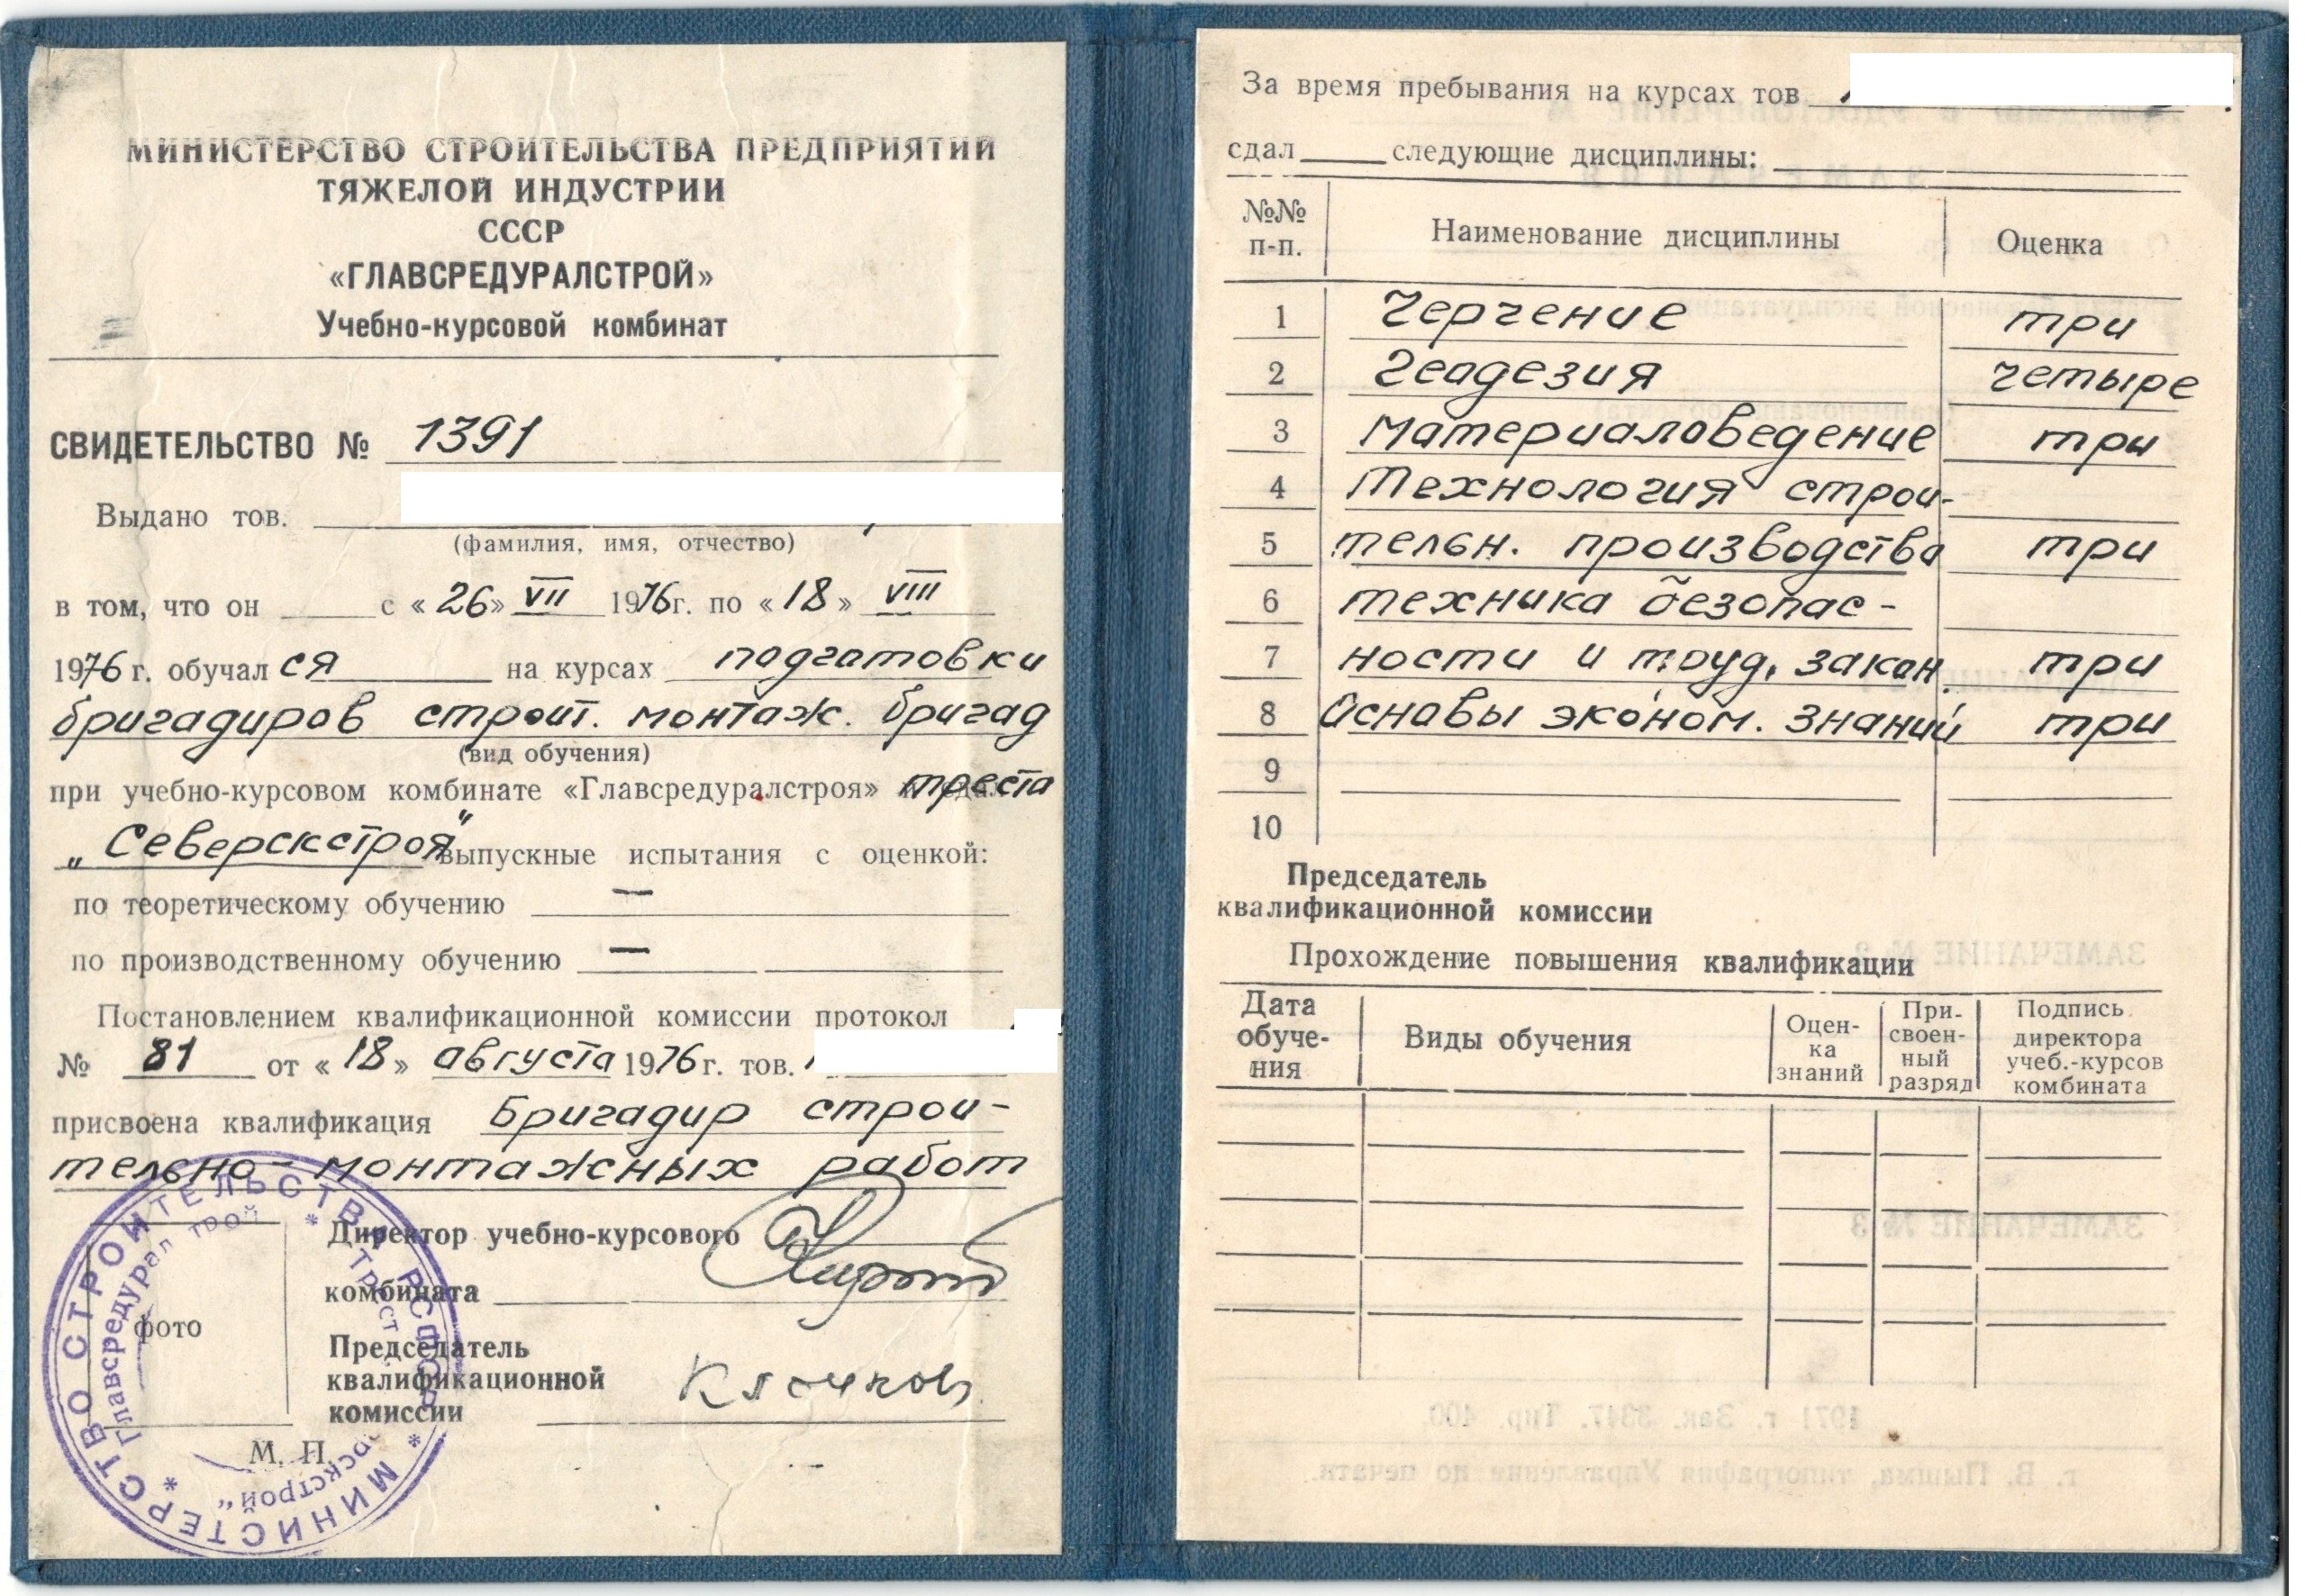 МИНИСТЕРСТВО СТРОИТЕЛЬСТВА ПРЕДПРИЯТИЙ
ТЯЖЕЛОЙ ИНДУСТРИИ
СССР
«ГЛАВСРЕДУРАЛСТРОЙ»
Учебно-курсовой комбинат
СВИДЕТЕЛЬСТВО № 1391
Выдано тов.
(фамилия, имя, отчество)
в том, что он с «26» VII 1976г. по «18» VIII
1976 г. обучался на курсах подгатовки
бригадиров строит. монтаж. бригад
(вид обучения)
при учебно-курсовом комбинате «Главсредуралстроя» треста
„Северскстроя" выпускные испытания с оценкой:
по теоретическому обучению —
по производственному обучению —
Постановлением квалификационной комиссии протокол
№ 81 от «18» августа 1976г. тов.
присвоена квалификация Бригадир строи-
тельно-монтажных работ
Директор учебно-курсового
комбината
фото
Председатель
квалификационной
комиссии
М. П.
МИНИСТЕРСТВО СТРОИТЕЛЬСТВА РСФСР
За время пребывания на курсах тов
сдал следующие дисциплины:
№№ п-п. Наименование дисциплины Оценка
1 Черчение три
2 Геадезия четыре
3 материаловедение три
4 Технология строи-
5 тельн. производства три
6 техника безопас-
7 ности и труд. закон. три
8 Аснавы эконом. знаний три
9
10
Председатель
квалификационной комиссии
Прохождение повышения квалификации
Дата обуче-ния Виды обучения Оцен-ка знаний При-своен-ный разряд Подпись директора учеб.-курсов комбината